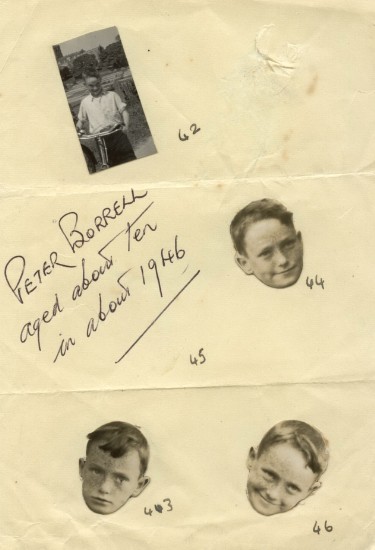 42
PETER BORRELL
aged about ten
in about 1946
44
45
443
46